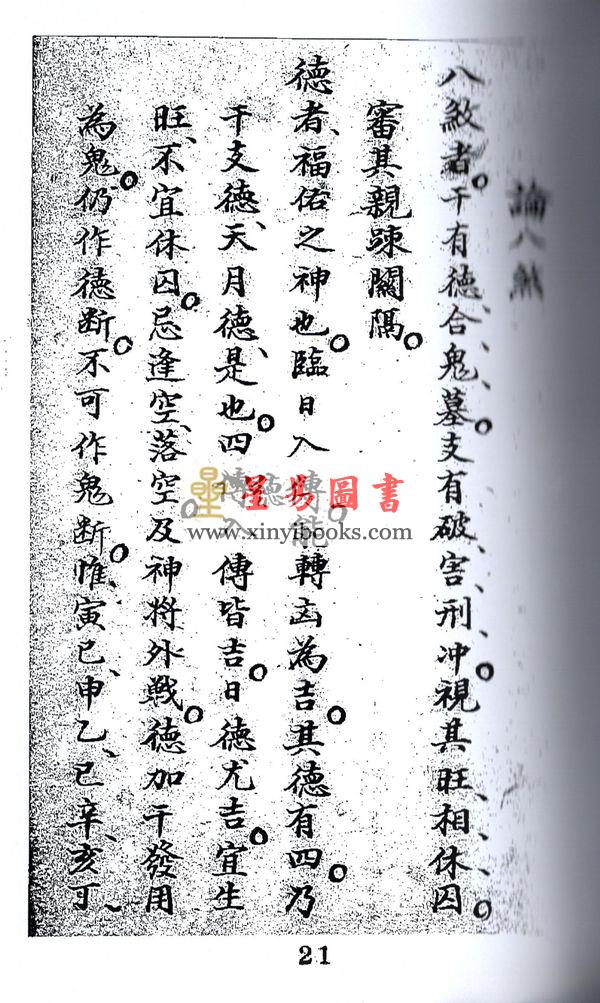 論八煞
八煞者。干有德、合、鬼、墓。支有破、害、刑、冲。視其旺、相、休、囚。
審其親踈闗隔。
德者、福佑之神也。臨日入傳。能轉凶為吉。其德有四。乃
干支德、天月德、是也。四德入傳皆吉。日德尤吉。宜生
旺、不宜休囚。忌逢空、落空及神將外戰。德加干發用
為鬼。仍作德断。不可作鬼断。惟寅巳、申乙、巳辛、亥丁、
星易圖書
www.xinyibooks.com
21